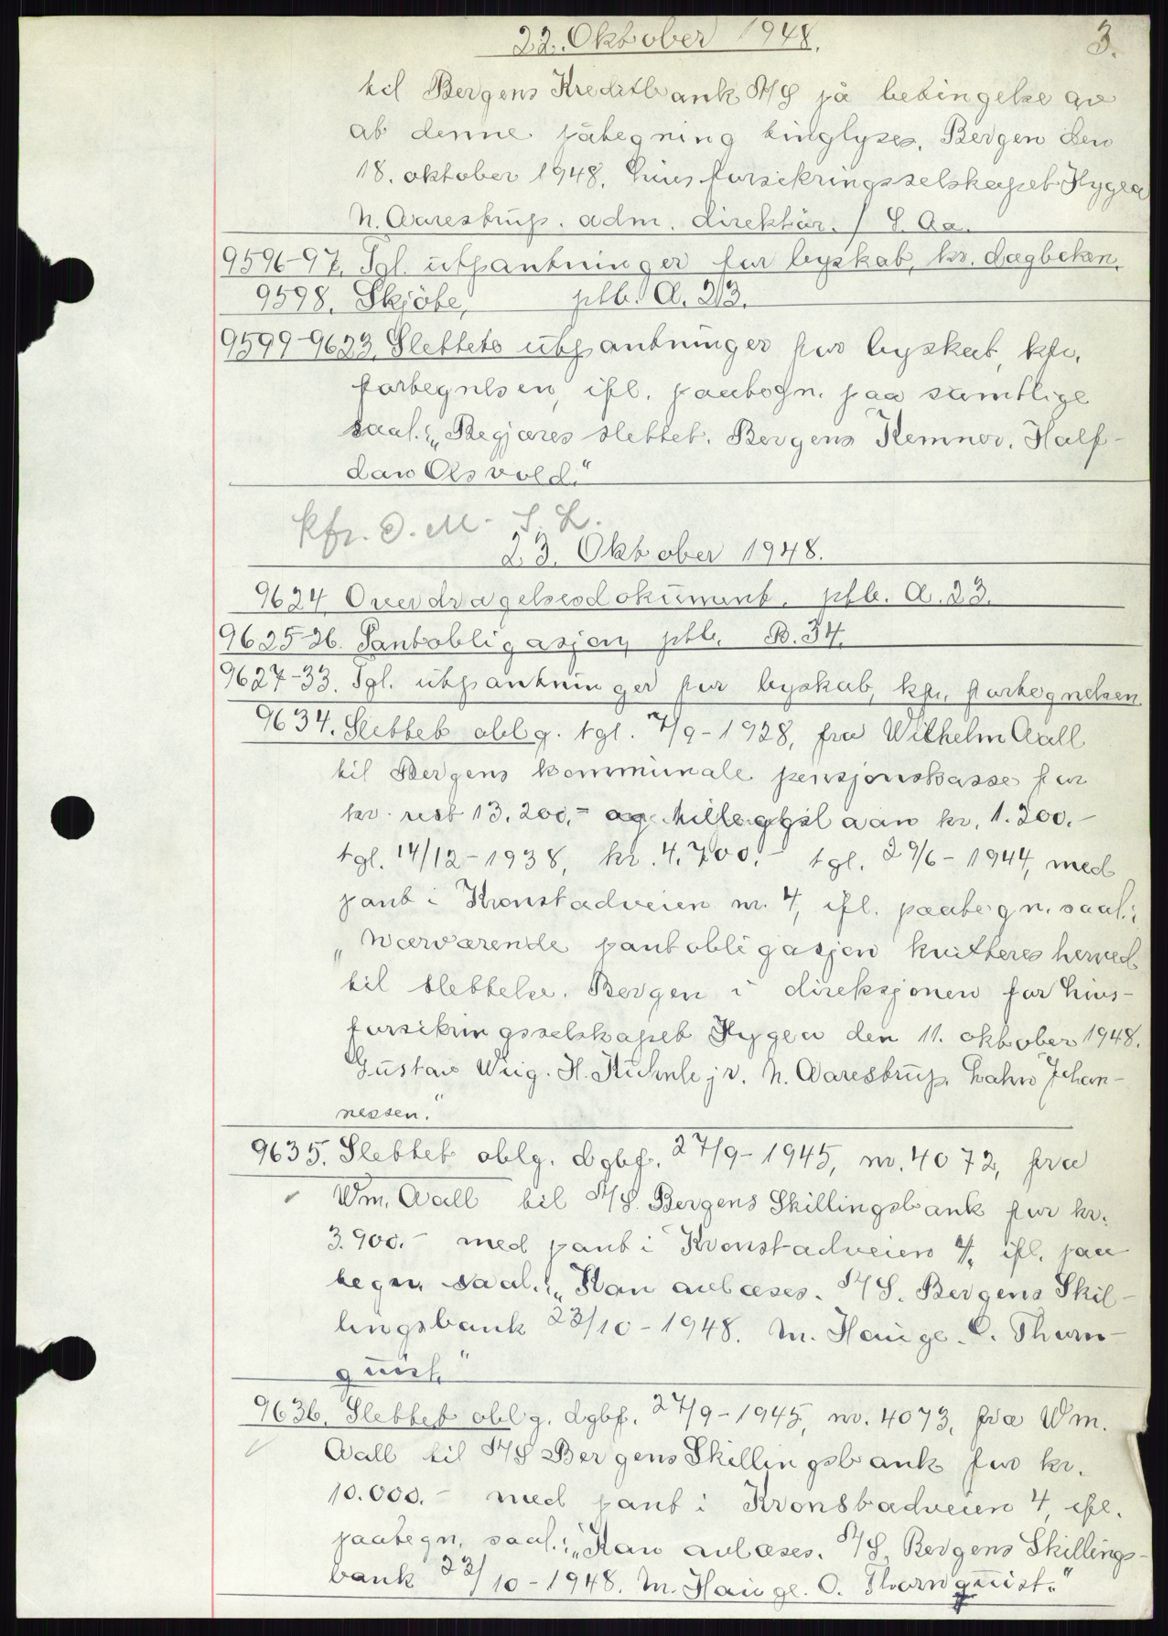 22. Oktober 1948.
3.
til Bergens Kreditbank A/S på betingelse av
at denne påtegning tinglyses. Bergen den
18. oktober 1948. Livsforsikringsselskapet Hygea
N. Aarestrup. adm. direktör. / L. Aa.
9596-97. Tgl. utpantninger for byskat, kr. dagboken.
9598. Skjöte, ptb. A. 23.
9599-9623. Slettete utpantninger for byskat, kfr.
fortegnelsen, ifl. paategn. paa samtlige
saal.: „Begjæres slettet. Bergens Kemner. Half-
dan Osvold."
kfr. O. M. S. L.
23. Oktober 1948.
9624. Overdragelsesdokument. ptb. A. 23.
9625-26. Pantobligasjon, ptb. B. 34.
9627-33. Tgl. utpantninger for byskat, kfr. fortegnelsen.
9634. Slettet oblg. tgl. 7/9-1928, fra Wilhelm Aall
til Bergens kommunale pensjonskasse for
kr. rest 13.200.- og tilleggslaan kr. 1.200.-
tgl. 14/12-1938, kr. 4.700.- tgl. 29/6-1944, med
pant i Kronstadveien nr. 4, ifl. paategn. saal.:
„Nærværende pantobligasjon kvitteres herved
til slettelse. Bergen i direksjonen for Livs-
forsikringsselskapet Hygea den 11. oktober 1948.
Gustav Wiig. H. Kuhnle jr. N. Aarestrup. Johan-
nessen."
9635. Slettet oblg. dgbf. 27/9-1945, nr. 4072, fra
Wm. Aall til A/S. Bergens Skillingsbank for kr.
3.900.- med pant i Kronstadveien 4, ifl. paa
tegn. saal.: „Kan avlæses. A/S. Bergens Skil-
lingsbank 23/10-1948. M. Hauge. O. Thorn-
quist."
9636. Slettet oblg. dgbf. 27/9-1945, nr. 4073, fra Wm.
Aall til A/S Bergens Skillingsbank for kr.
10.000.- med pant i Kronstadveien 4, ifl.
paategn. saal.: „Kan avlæses. A/S. Bergens Skillings-
bank 23/10-1948. M. Hauge. O. Thornquist."